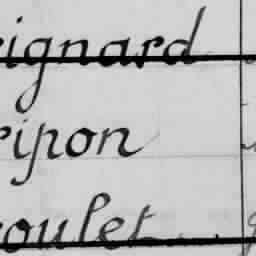 eignard
ripon
coulet